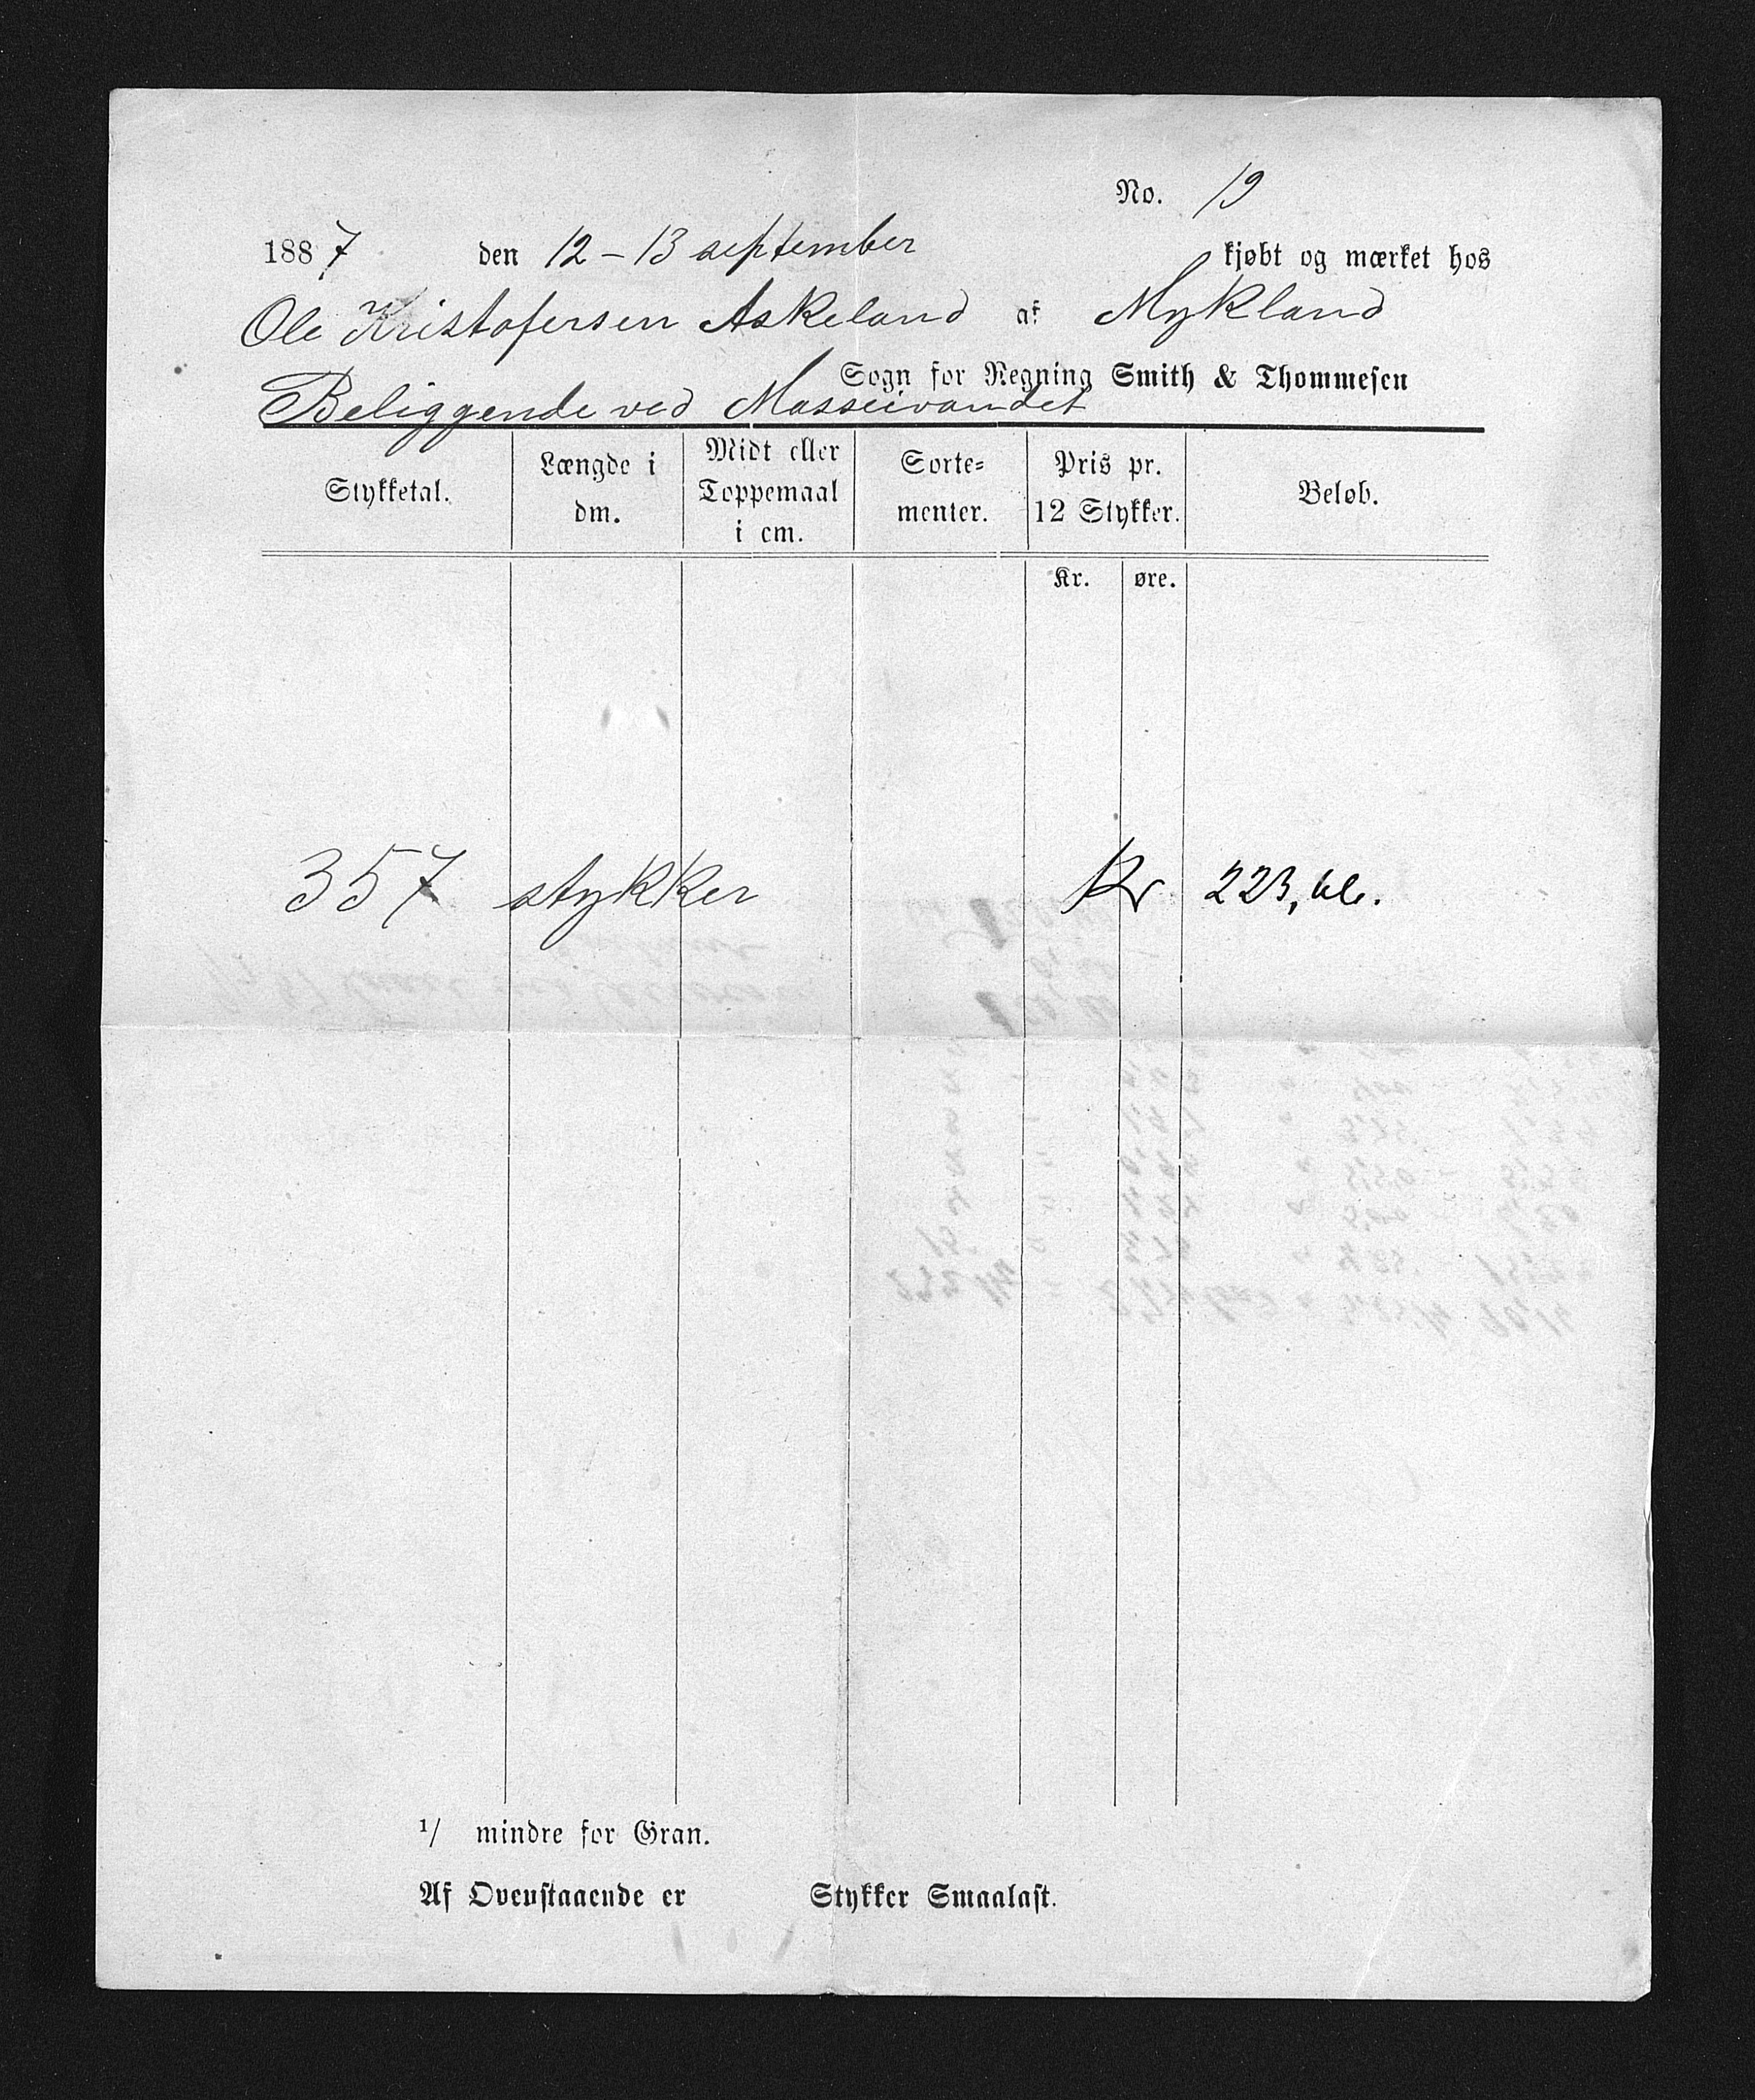 No. 19
1887 den 12 – 13 september kjøbt og mærket hos
Ole Kristofersen Askeland af Mykland
Sogn for Regning Smith & Thommesen
Beliggende ved Masseivandet
Stykketal. Længde i dm. Midt eller Toppemaal i cm. Sorte-menter. Pris pr. 12 Stykker. Beløb.
Kr. øre.
357 stykker Kr 223,
1/ mindre for Gran.
Af Ovenstaaende er Stykker Smaalast.